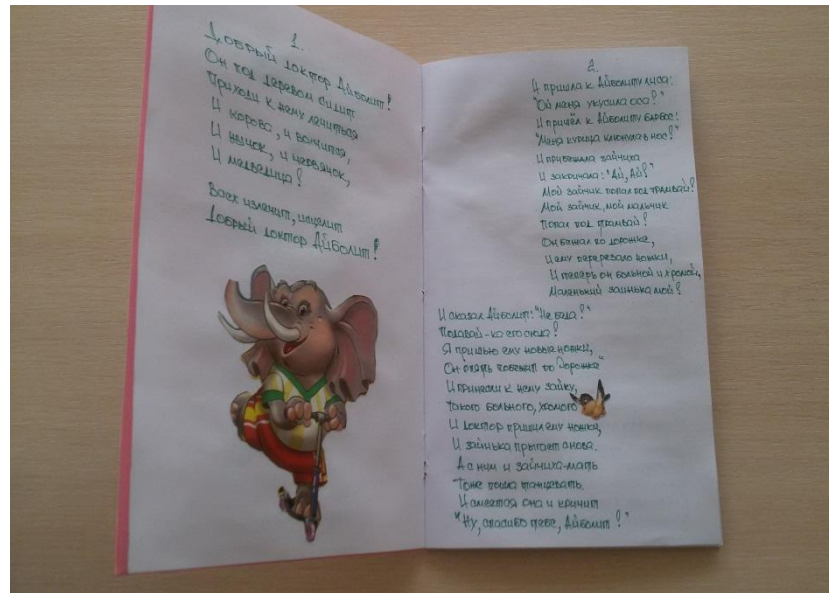 1.
Добрый доктор Айболит!
Он под деревом сидит.
Приходи к нему лечиться
И корова, и волчица,
И жучок, и червячок,
И медведица!
Всех излечит, исцелит
Добрый доктор Айболит!
2.
И пришла к Айболиту лиса:
"Ой меня укусила оса!"
И пришёл к Айболиту барбос:
"Меня курица клюнула в нос!"
И прибежала зайчиха
И закричала: "Ай, Ай!"
Мой зайчик попал под трамвай!
Мой зайчик, мой мальчик
Попал под трамвай!
Он бежал по дорожке,
И ему перерезало ножки,
И теперь он больной и хромой,
Маленький заинька мой!
И сказал Айболит: "Не беда!"
Подавай-ка его сюда!
Я пришью ему новые ножки,
Он опять побежит по дорожке"
И принесли к нему зайку,
Такого больного, хромого
И доктор пришил ему ножки,
И заинька прыгает снова.
А с ним и зайчиха-мать
Тоже пошла танцевать.
И смеется она и кричит
"Ну, спасибо тебе, Айболит!"